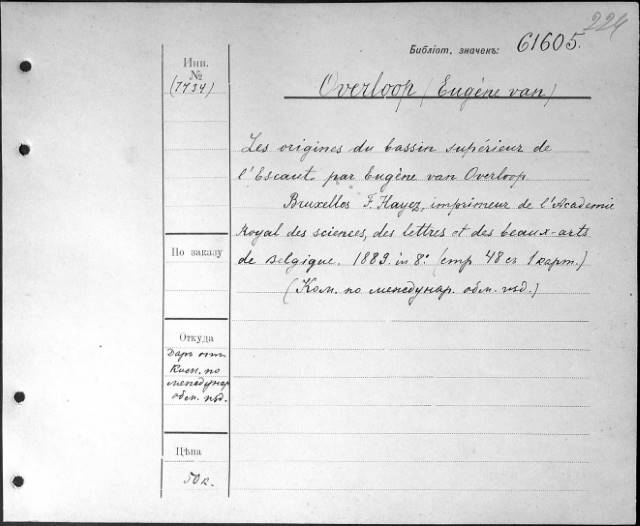 224
Библіот. значекъ: 61605.
Инв.
№
(7734)
Overloop (Eugène van)
Les origines du bassin supérieur de
l'Escaut par Eugène van Overloop
Bruxelles F. Hayez, imprimeur de l'Academie
Royal des sciences, des lettres et des beaux-arts
de Belgique. 1889. in 8° (стр 48 съ 1 карт.)
(Ком. по междунар. обм. изд.)
По заказу
Откуда
Даръ отъ
Ком. по
междунар
обм. изд.
Цѣна
50 к.